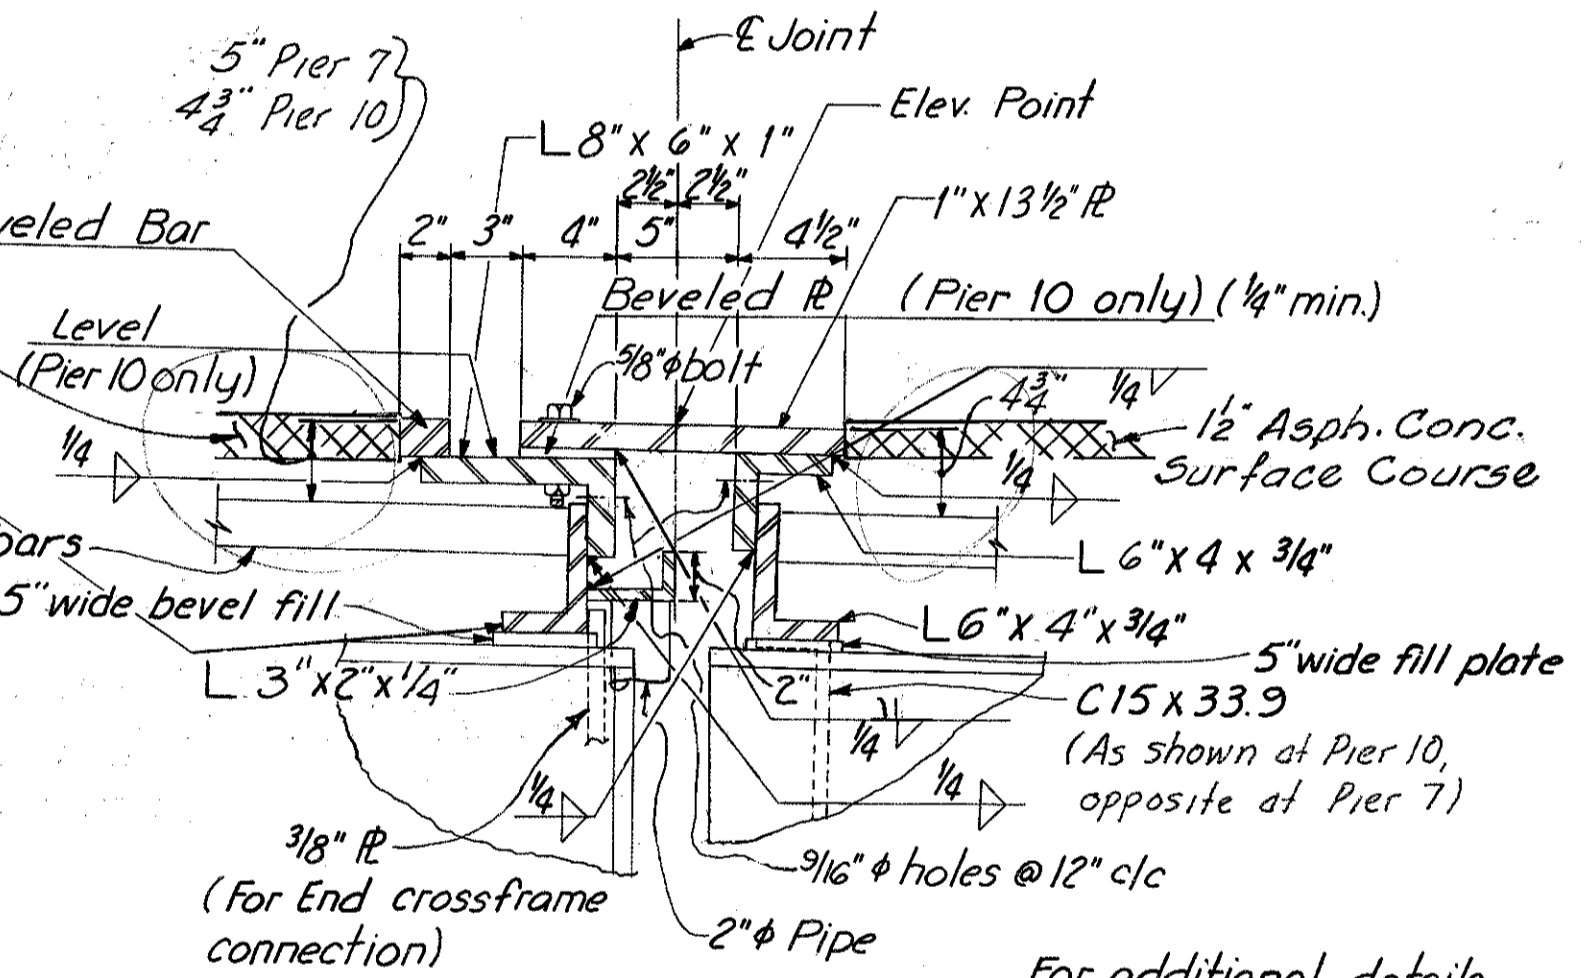 ℄ Joint
5" Pier 7
4 3/4" Pier 10
Elev. Point
L 8" x 6" x 1"
2½" 2½"
1" x 13½" ℙL
Beveled Bar
2" 3" 4" 5" 4½"
Beveled ℙL (Pier 10 only) (¼" min.)
Level
(Pier 10 only)
5/8" φ bolt
4 3/4"
1/4
1/4
1½" Asph. Conc.
Surface Course
1/4
bars
L 6" x 4 x 3/4"
5" wide bevel fill
L 6" x 4" x 3/4"
5" wide fill plate
L 3" x 2" x 1/4"
2"
C 15 x 33.9
(As shown at Pier 10,
opposite at Pier 7)
1/4
1/4
1/4
3/8" ℙL
(For End crossframe
connection)
9/16" φ holes @ 12" c/c
2" φ Pipe
For additional details